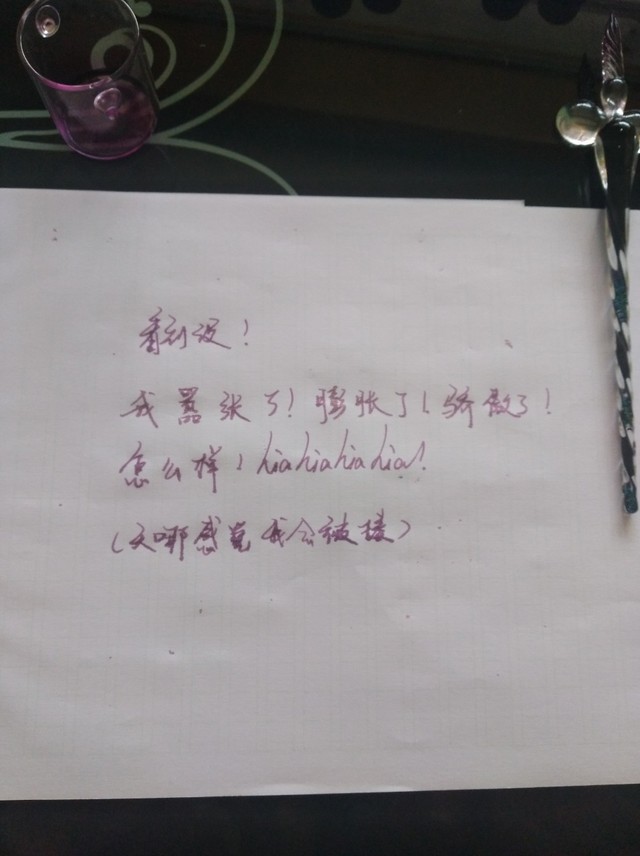 看到没！
我嚣张了！膨胀了！骄傲了！
怎么样！hiahiahiahia！
（天哪感觉我会被揍）